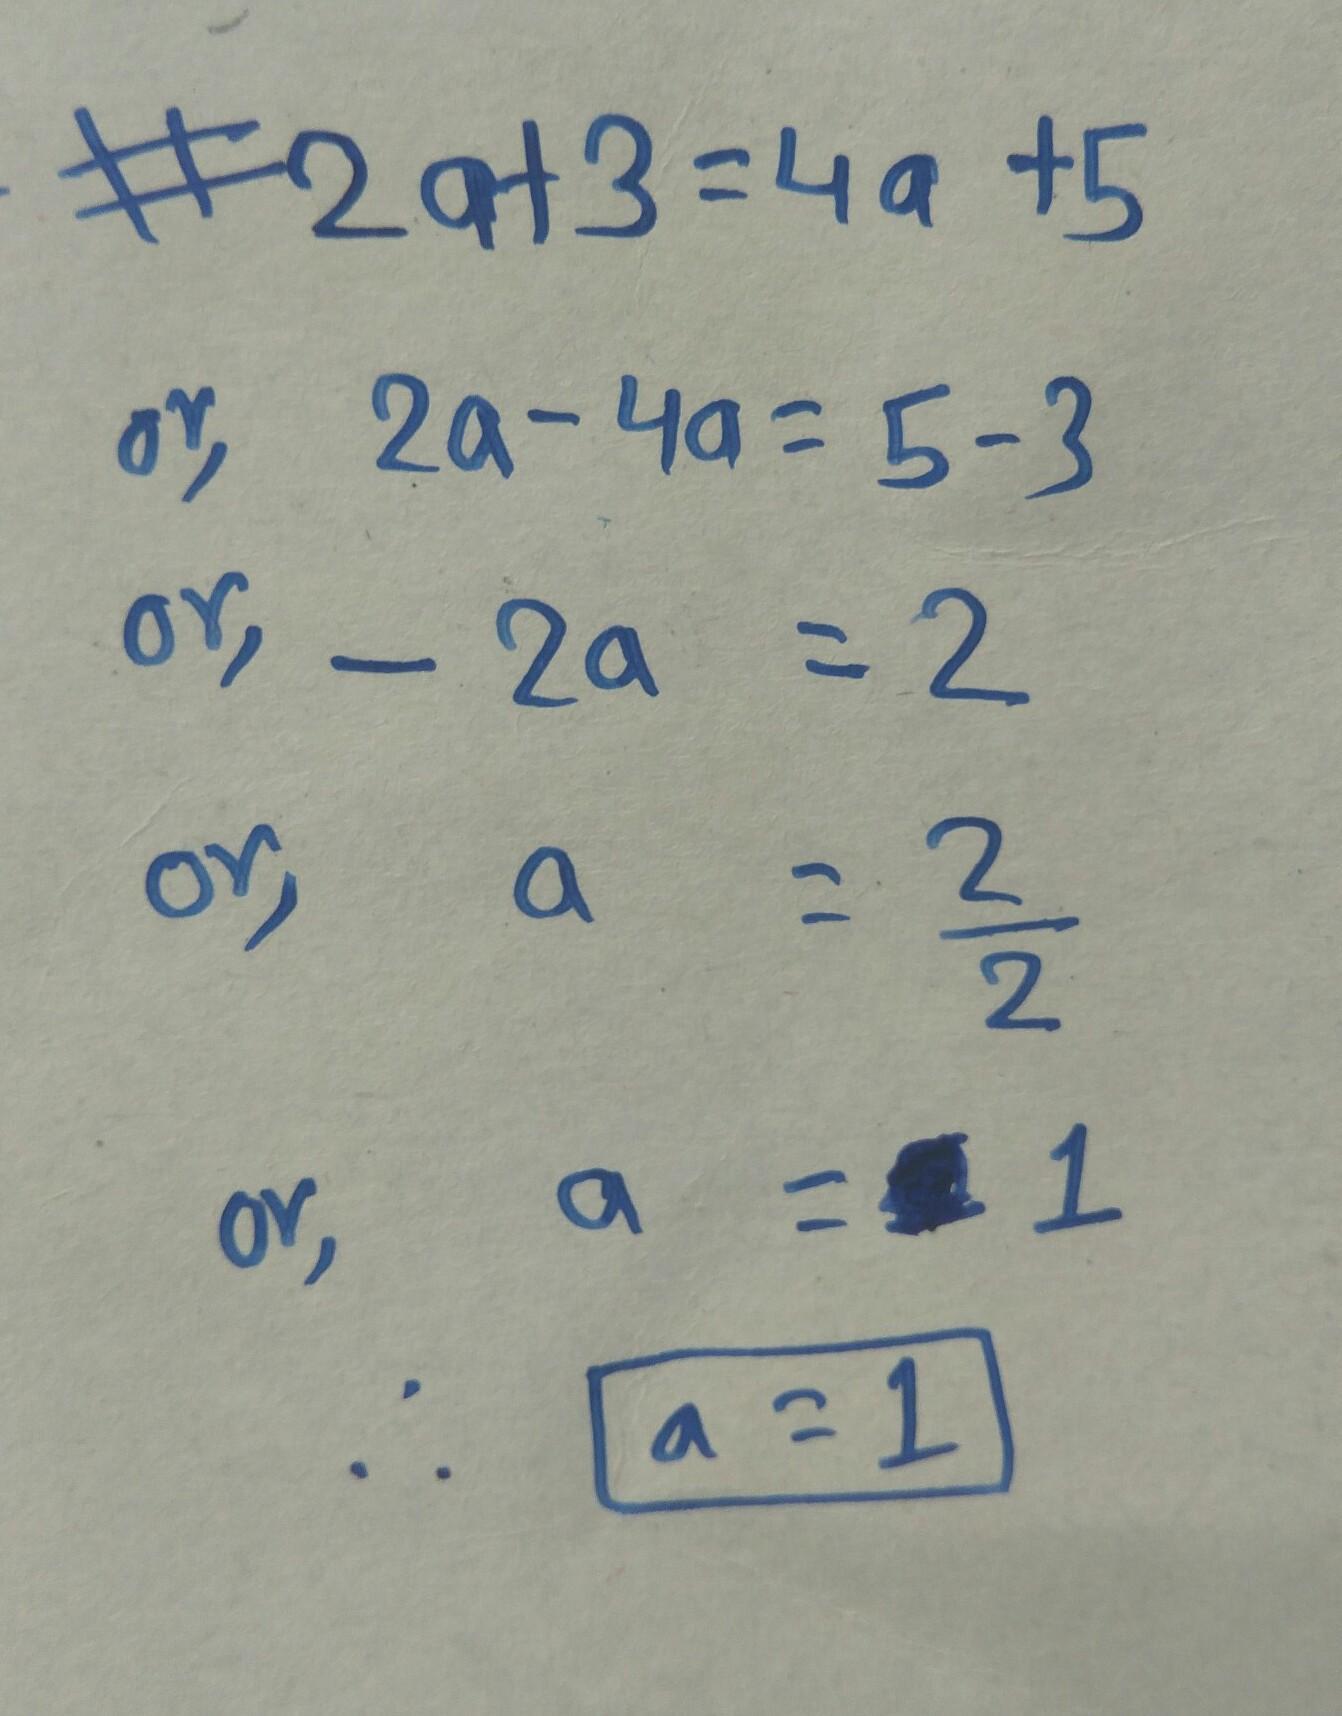 # 2a+3=4a+5
or, 2a-4a=5-3
or, -2a=2
or, a=2/2
or, a=1
∴ a=1